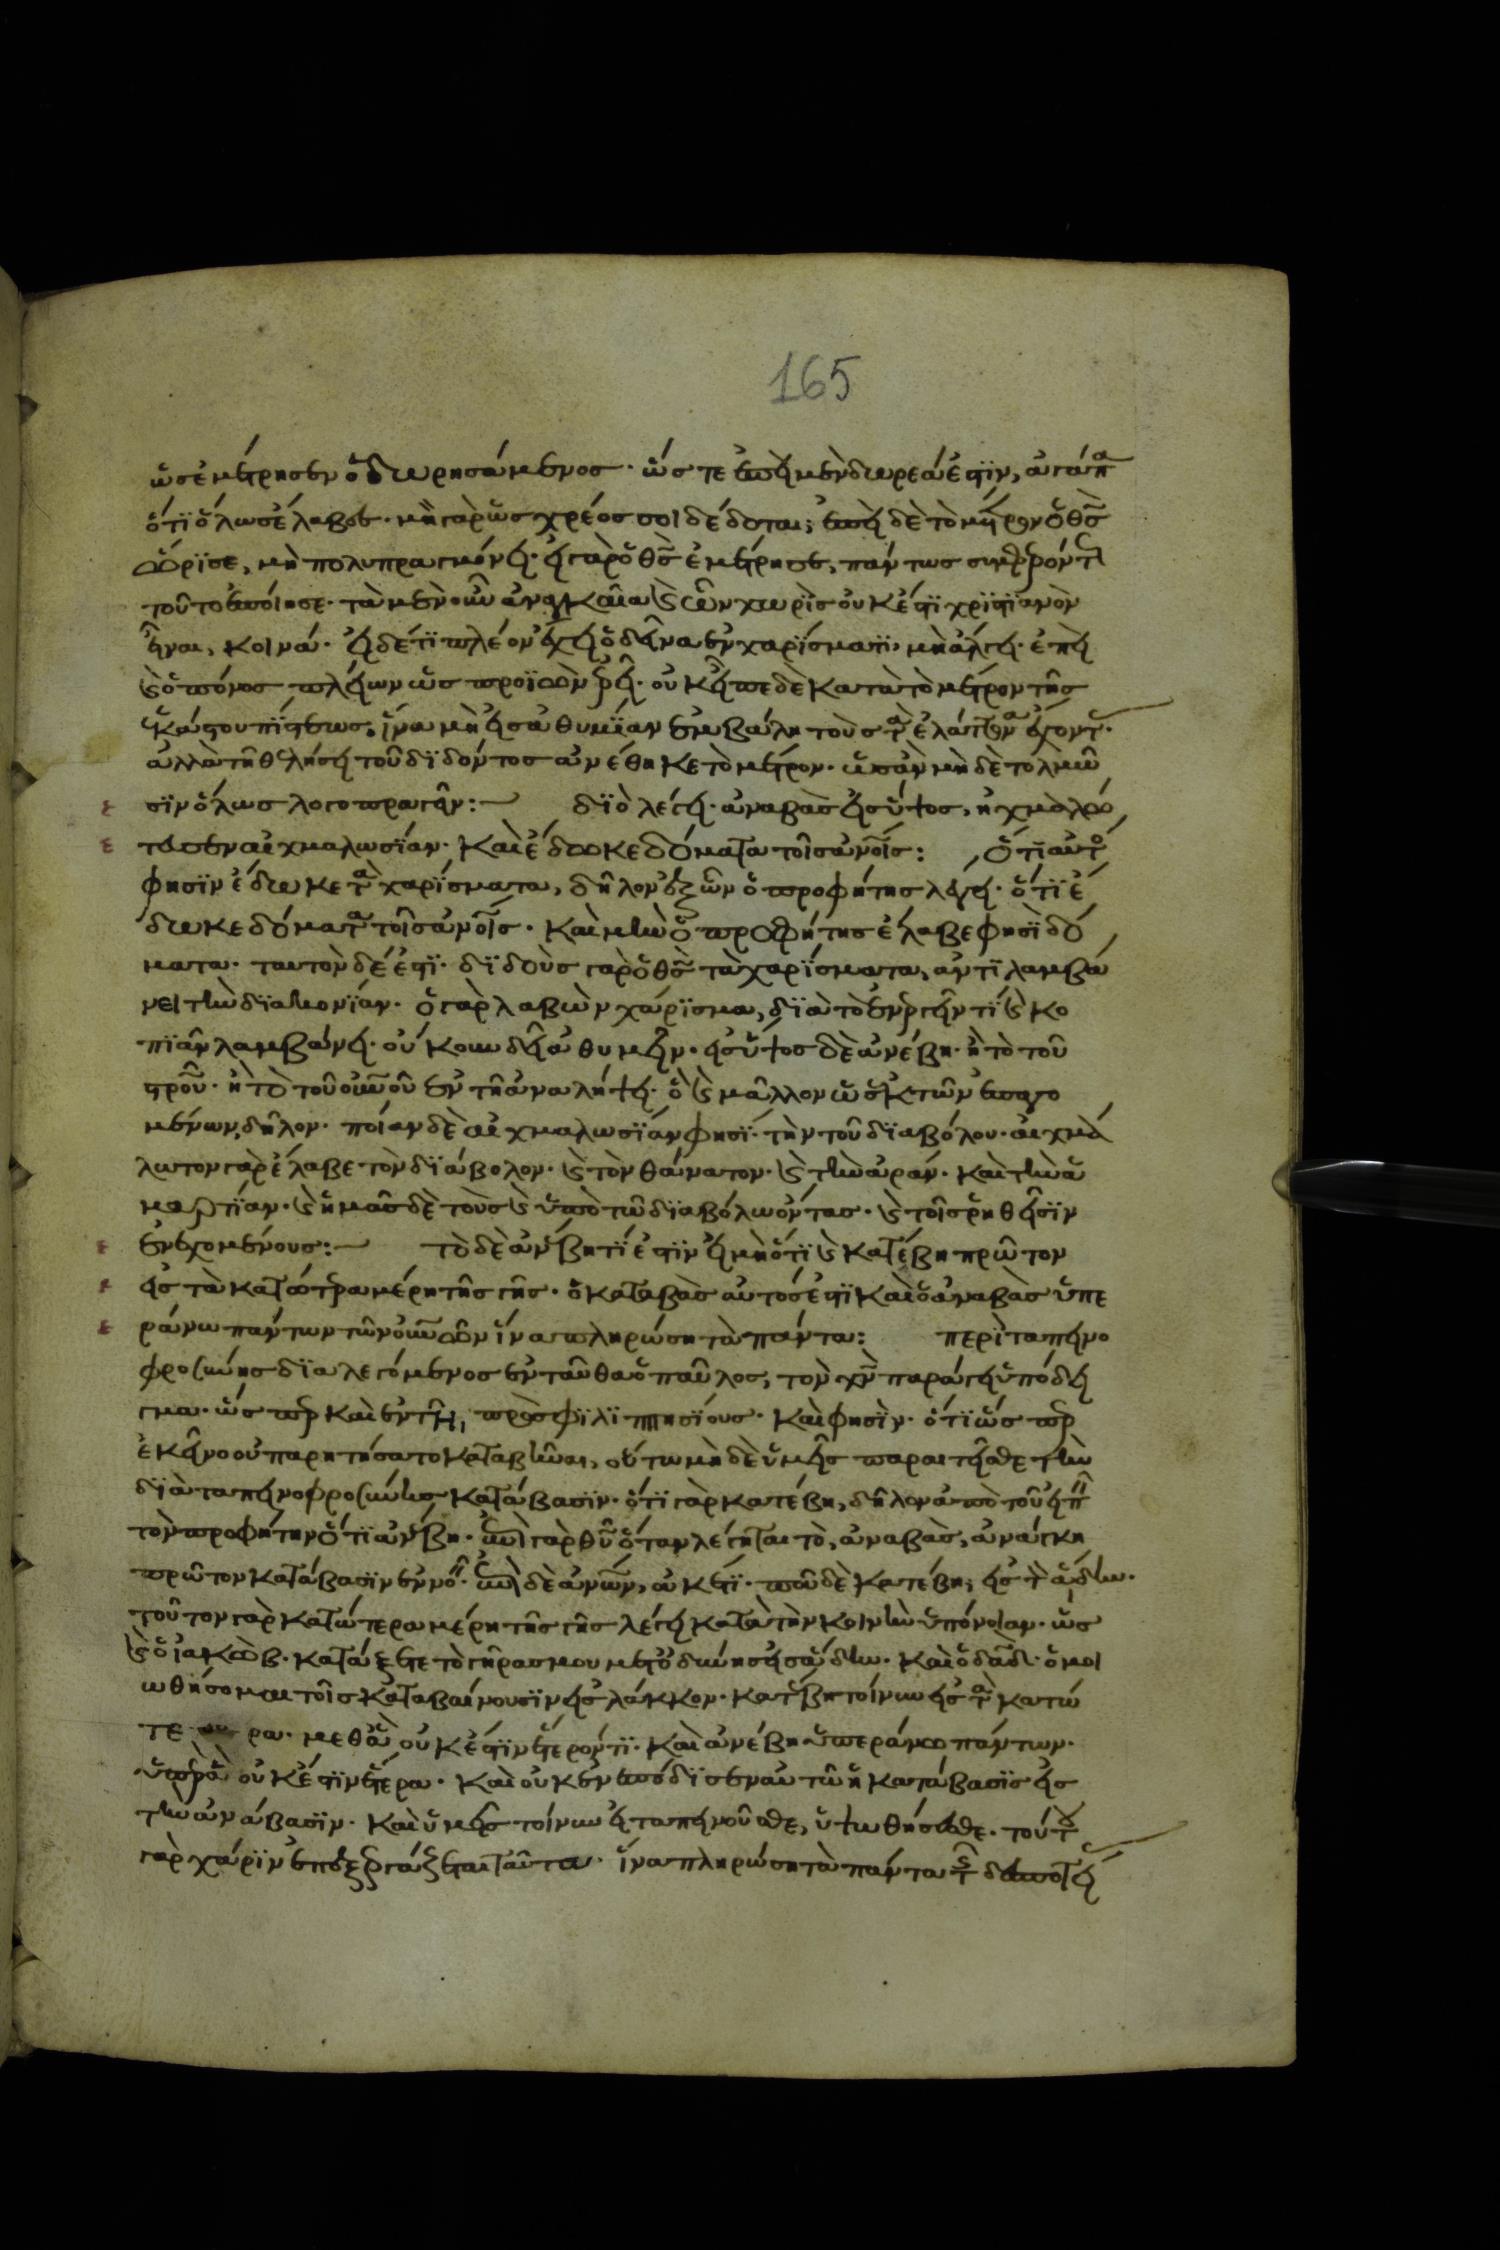 165
ὡς ἐμέτρησεν ὁ δωρησάμενος. ὥς τε ἐπεὶ μὲν δωρεά ἐστιν, ἀγάπα
ὅτι ὅλως ἔλαβες. μὴ γὰρ ὡς χρέος σοι δέδοται; ἐπεὶ δὲ τὸ μέτρον ὁ θς
ὥρισε, μὴ πολυπραγμόνει. εἰ γὰρ ὁ θς ἐμέτρησε, πάντως συμφερόντως
τοῦτο ἐποίησε. τὰ μὲν οὖν ἀναγκαῖα καὶ ὧν χωρὶς οὐκ ἔστι χριστιανὸν
εἶναι, κοινά. εἰ δέ τι πλέον ἔχει ὁ δεῖνα ἐν χαρίσματι, μὴ ἄλγει. ἐπεὶ
καὶ ὁ πόνος πλείων ὡς προϊὼν ἐρεῖ. οὐκ εἶπε δὲ κατὰ τὸ μέτρον τῆς
ἑκάστου πίστεως, ἵνα μὴ εἰς ἀθυμίαν ἐμβάλη τοὺς τὰ ἐλάττονα ἔχοντας.
ἀλλὰ τῆ θελήσει τοῦ διδόντος ἀνέθηκε τὸ μέτρον. ὡς ἂν μὴ δὲ τολμῶ
σιν ὅλως λογοπραγεῖν: διὸ λέγει. ἀναβὰς εἰς ὕψος, ἠχμαλώ
τευσεν αἰχμαλωσίαν. καὶ ἔδωκε δόματα τοῖς ἀνοις: Ὅτι αὐτὸς
φησὶν ἔδωκε τὰ χαρίσματα, δῆλον ἐξ ὧν ὁ προφήτης λέγει. ὅτι ἔ
δωκε δόματα τοῖς ἀνοις. καὶ μὴν ὁ προφήτης ἔλαβε φησὶ δό
ματα. ταυτὸν δέ ἐστι. διδοὺς γὰρ ὁ θς τὰ χαρίσματα, ἀντιλαμβά
νει τὴν διακονίαν. ὁ γὰρ λαβὼν χάρισμα, διὰ τὸ ἐνεργεῖν τι καὶ κο
πιᾶν λαμβάνει. οὔκουν δεῖ ἀθυμεῖν. εἰς ὕψος δὲ ἀνέβη. ἢ τὸ τοῦ
στροῦ. ἢ τὸ τοῦ οὐνοῦ ἐν τῆ ἀναλήψει. ὃ καὶ μᾶλλον ὡς ἐκ τῶν ἐπαγο
μένων, δῆλον. ποίαν δὲ αἰχμαλωσίαν φησί. τὴν τοῦ διαβόλου. αἰχμά
λωτον γὰρ ἔλαβε τὸν διάβολον. καὶ τὸν θάνατον. καὶ τὴν ἀράν. καὶ τὴν ἁ
μαρτίαν. καὶ ἡμᾶς δὲ τοὺς καὶ ὑπὸ τῶ διαβόλω ὄντας. καὶ τοῖς ῥηθεῖσιν
ἐνεχομένους: Τὸ δὲ ἀνέβη τί ἐστιν εἰ μὴ ὅτι καὶ κατέβη πρῶτον
εἰς τὰ κατώτερα μέρη τῆς γῆς. ὁ καταβὰς αὐτός ἐστι καὶ ὁ ἀναβὰς ὑπε
ράνω πάντων τῶν οὐνῶν ἵνα πληρώση τὰ πάντα: Περὶ ταπεινο
φροσύνης διαλεγόμενος ἐνταῦθα ὁ παῦλος, τὸν χν παράγει ὑπόδει
γμα. ὥσπερ καὶ ἐν τῆ πρὸς φιλιππησίους. καὶ φησίν. ὅτι ὥσπερ
ἐκεῖνος οὐ παρητήσατο καταβῆναι, οὕτω μὴ δὲ ὑμεῖς παραιτεῖσθε τὴν
διὰ ταπεινοφροσύνης κατάβασιν. ὅτι γὰρ κατέβη, δῆλον ἀπὸ τοῦ εἰπεῖν
τὸν προφήτην ὅτι ἀνέβη. ἐπὶ γὰρ θυ ὅταν λέγηται τὸ, ἀναβὰς, ἀνάγκη
πρῶτον κατάβασιν ἐννοεῖν. ἐπὶ δὲ ἀνων, οὐκέτι. ποῦ δὲ κατέβη; εἰς τὸν ἅδην.
τοῦτον γὰρ κατώτερα μέρη τῆς γῆς λέγει κατὰ τὴν κοινὴν ὑπόνοιαν. ὡς
καὶ ὁ ἰακώβ. κατάξετε τὸ γῆρας μου μετ' ὀδύνης εἰς ἅδην. καὶ ὁ δαδ. ὁμοι
ωθήσομαι τοῖς καταβαίνουσιν εἰς λάκκον. κατέβη τοίνυν εἰς τὰ κατώ
τερα. μεθ' ἃ οὐκ ἔστιν ἕτερόν τι. καὶ ἀνέβη ὑπεράνω πάντων.
ὑπὲρ ἃ οὐκ ἔστιν ἕτερα. καὶ οὐκ ἐνεπόδισεν αὐτῶ ἡ κατάβασις εἰς
τὴν ἀνάβασιν. καὶ ὑμεῖς τοίνυν εἰ ταπεινοῦσθε, ὑψωθήσεσθε. τούτου
γὰρ χάριν ἐπεξεργάζεται ταῦτα. ἵνα πληρώση τὰ πάντα τῆς δεσποτεί